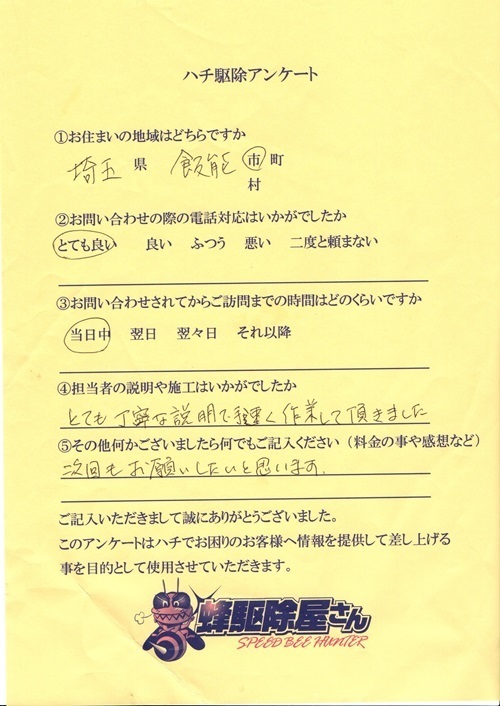 ハチ駆除アンケート
①お住まいの地域はどちらですか
埼玉 県 飯能 市 町
村
②お問い合わせの際の電話対応はいかがでしたか
とても良い 良い ふつう 悪い 二度と頼まない
③お問い合わせされてからご訪問までの時間はどのくらいですか
当日中 翌日 翌々日 それ以降
④担当者の説明や施工はいかがでしたか
とても丁寧な説明で手早く作業して頂きました
⑤その他何かございましたら何でもご記入ください（料金の事や感想など）
次回もお願いしたいと思います。
ご記入いただきまして誠にありがとうございました。
このアンケートはハチでお困りのお客様へ情報を提供して差し上げる
事を目的として使用させていただきます。
蜂駆除屋さん
SPEED BEE HUNTER